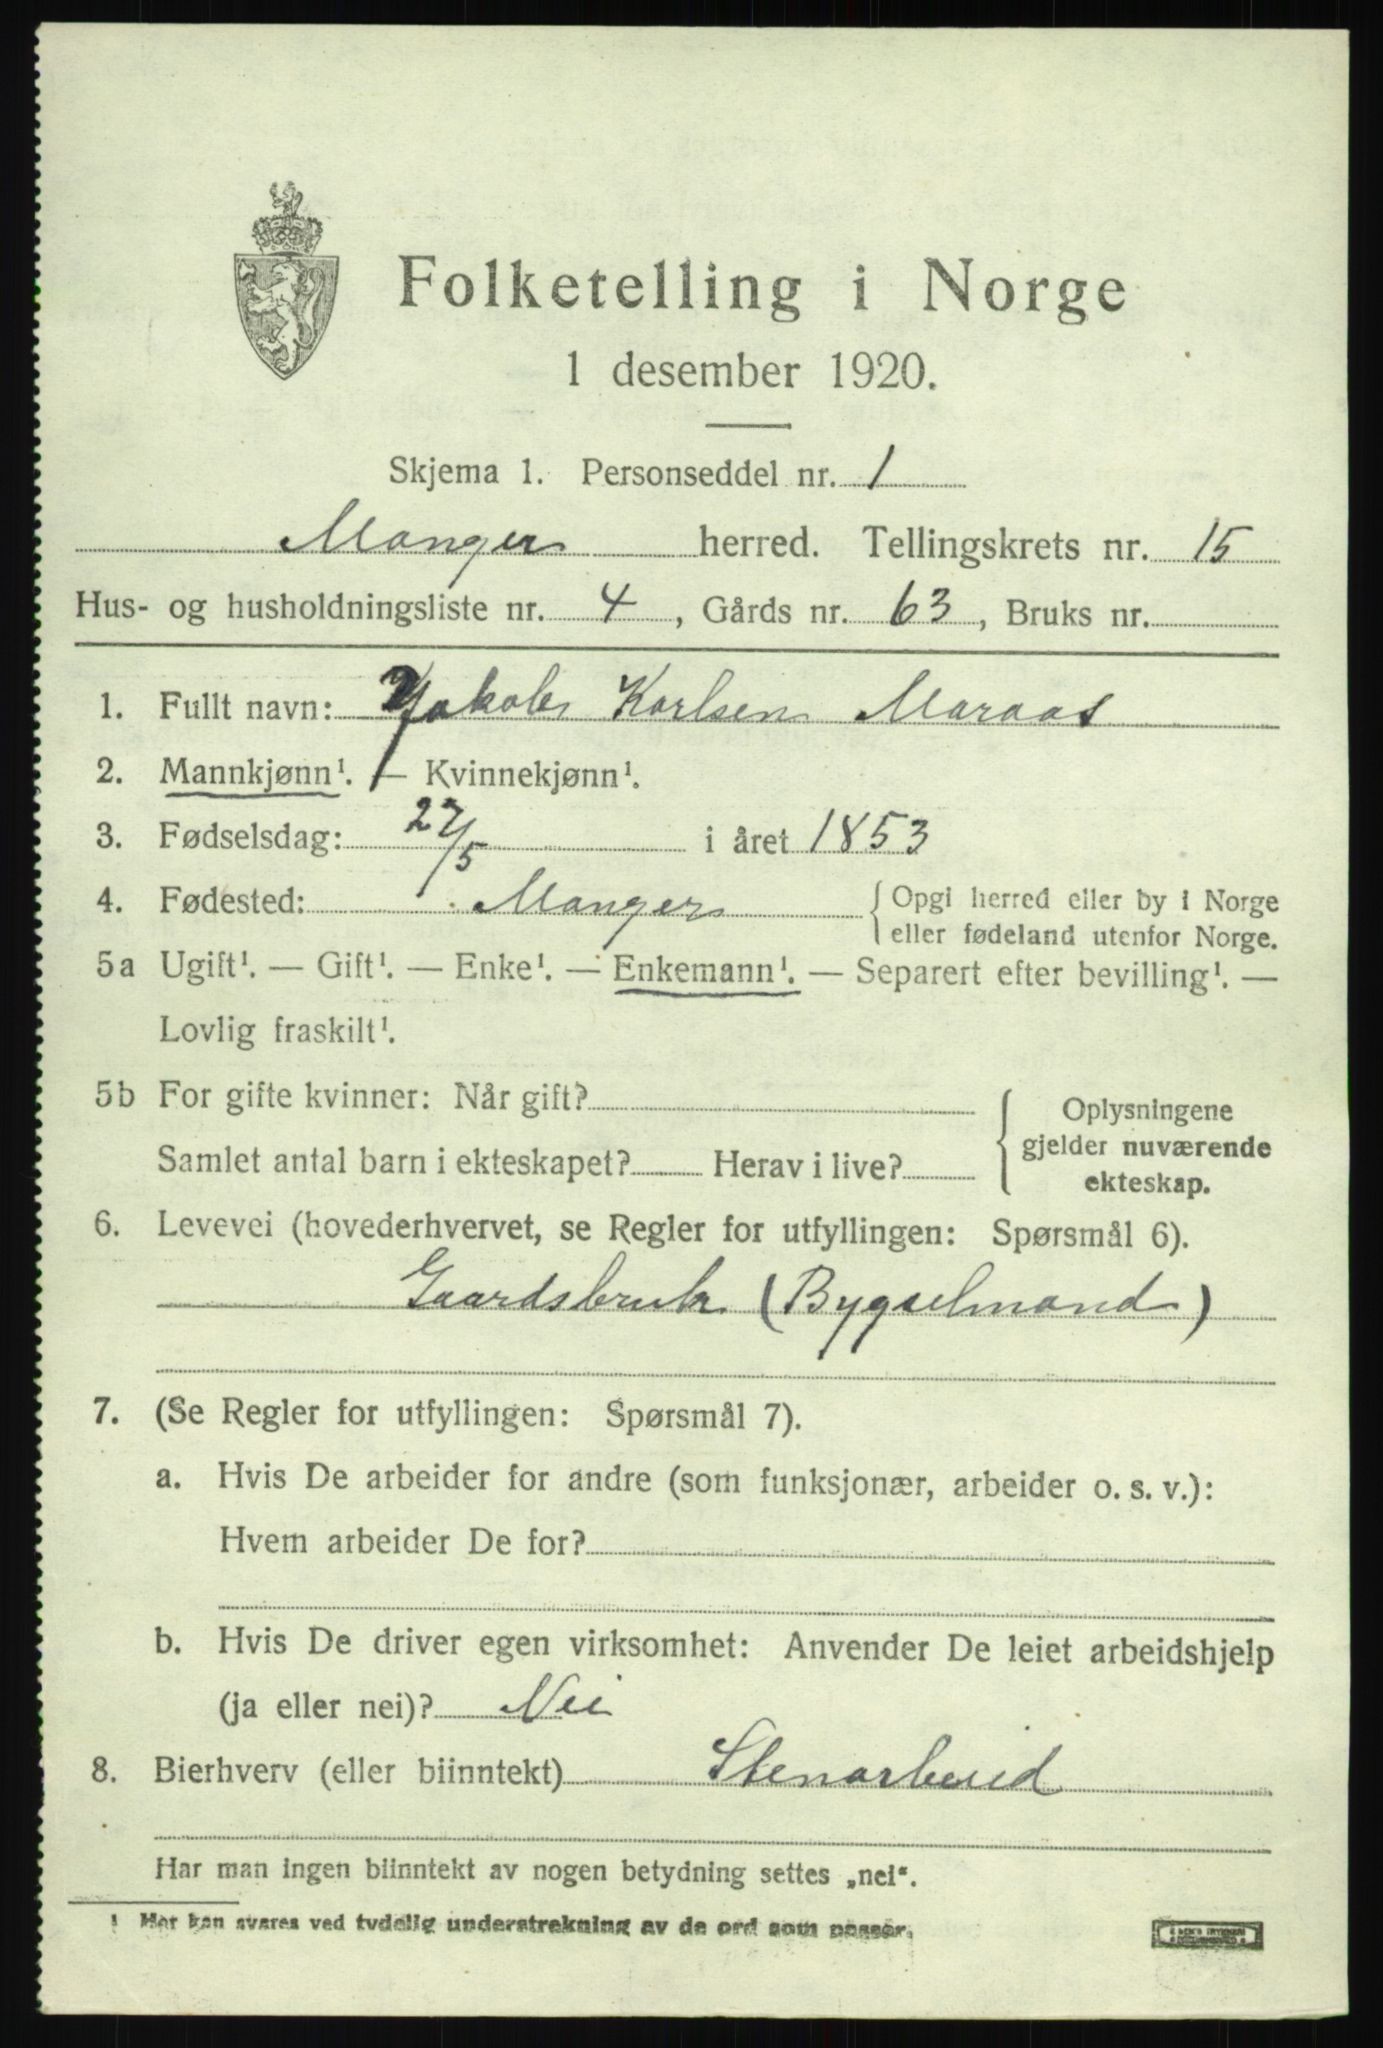 Folketelling i Norge
1 desember 1920.
Skjema 1. Personseddel nr. 1
Manger herred. Tellingskrets nr. 15
Hus- og husholdningsliste nr. 4, Gårds nr. 63, Bruks nr.
1. Fullt navn: Jakob Karlsen Maraas
2. Mannkjønn¹. — Kvinnekjønn¹.
3. Fødselsdag: 27/5 i året 1853
4. Fødested: Manger { Opgi herred eller by i Norge
eller fødeland utenfor Norge.
5a Ugift¹. — Gift¹. — Enke¹. — Enkemann¹. — Separert efter bevilling¹. —
Lovlig fraskilt¹.
5b For gifte kvinner: Når gift? { Oplysningene
gjelder nuværende
Samlet antal barn i ekteskapet? Herav i live?
ekteskap.
6. Levevei (hovederhvervet, se Regler for utfyllingen: Spørsmål 6).
Gaardsbruk (Bygselmand)
7. (Se Regler for utfyllingen: Spørsmål 7).
a. Hvis De arbeider for andre (som funksjonær, arbeider o. s. v.):
Hvem arbeider De for?
b. Hvis De driver egen virksomhet: Anvender De leiet arbeidshjelp
(ja eller nei)? Nei
8. Bierhverv (eller biinntekt) Stenarbeid
Har man ingen biinntekt av nogen betydning settes „nei“.
¹ Her kan svares ved tydelig understrekning av de ord som passer.